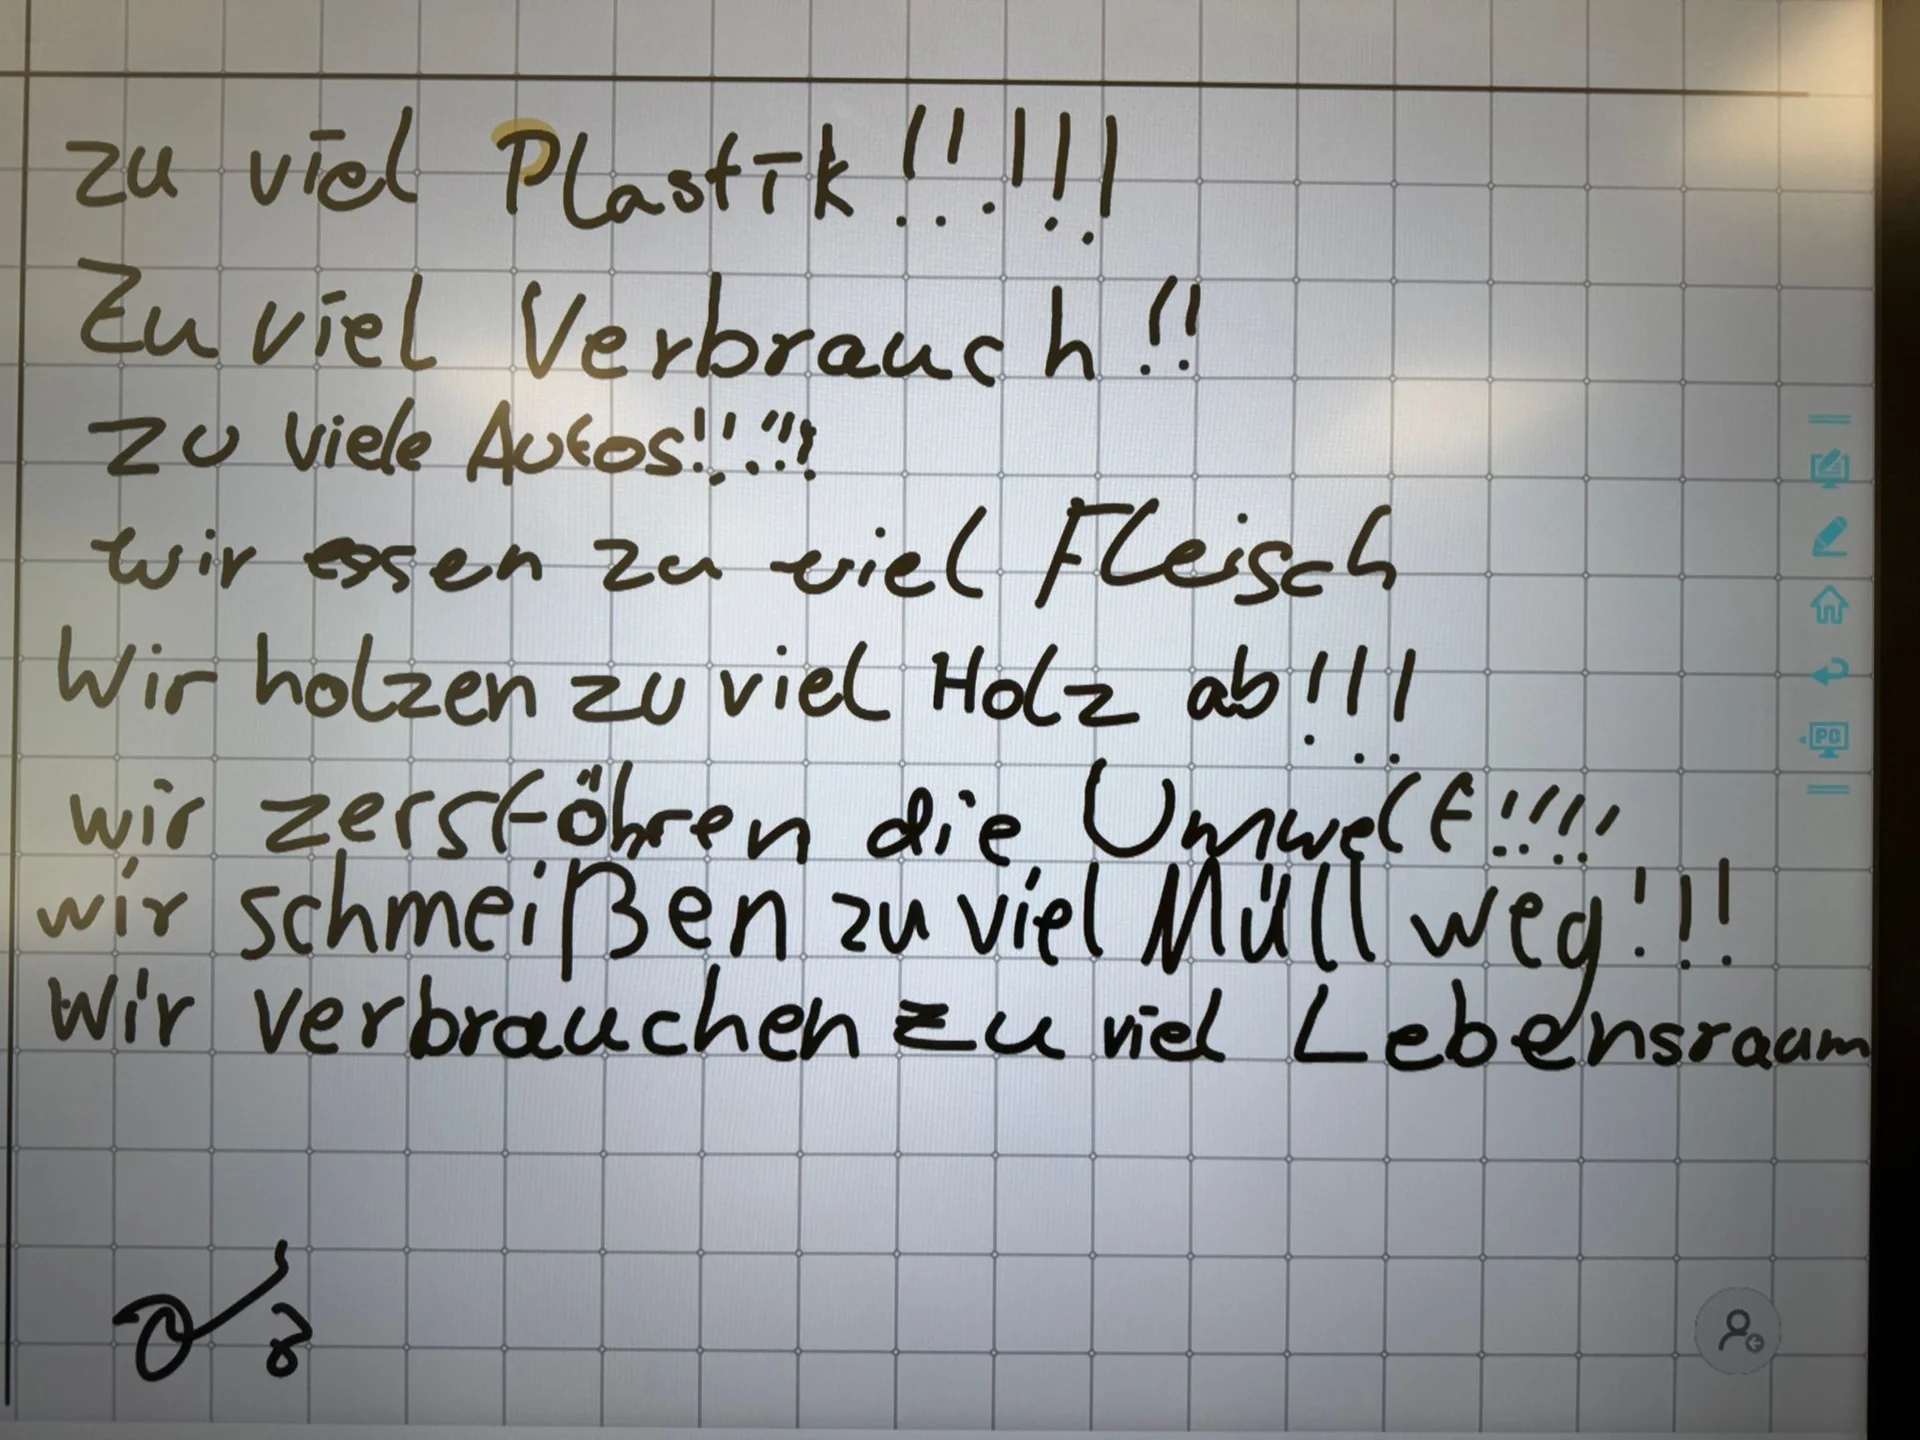 zu viel Plastik!!!!!
Zu viel Verbrauch!!
zu viele Autos!!!!!
wir essen zu viel Fleisch
Wir holzen zu viel Holz ab!!!
wir zerstöhren die Umwelt!!!!
wir schmeißen zu viel Müll weg!!!
Wir verbrauchen zu viel Lebensraum
PC